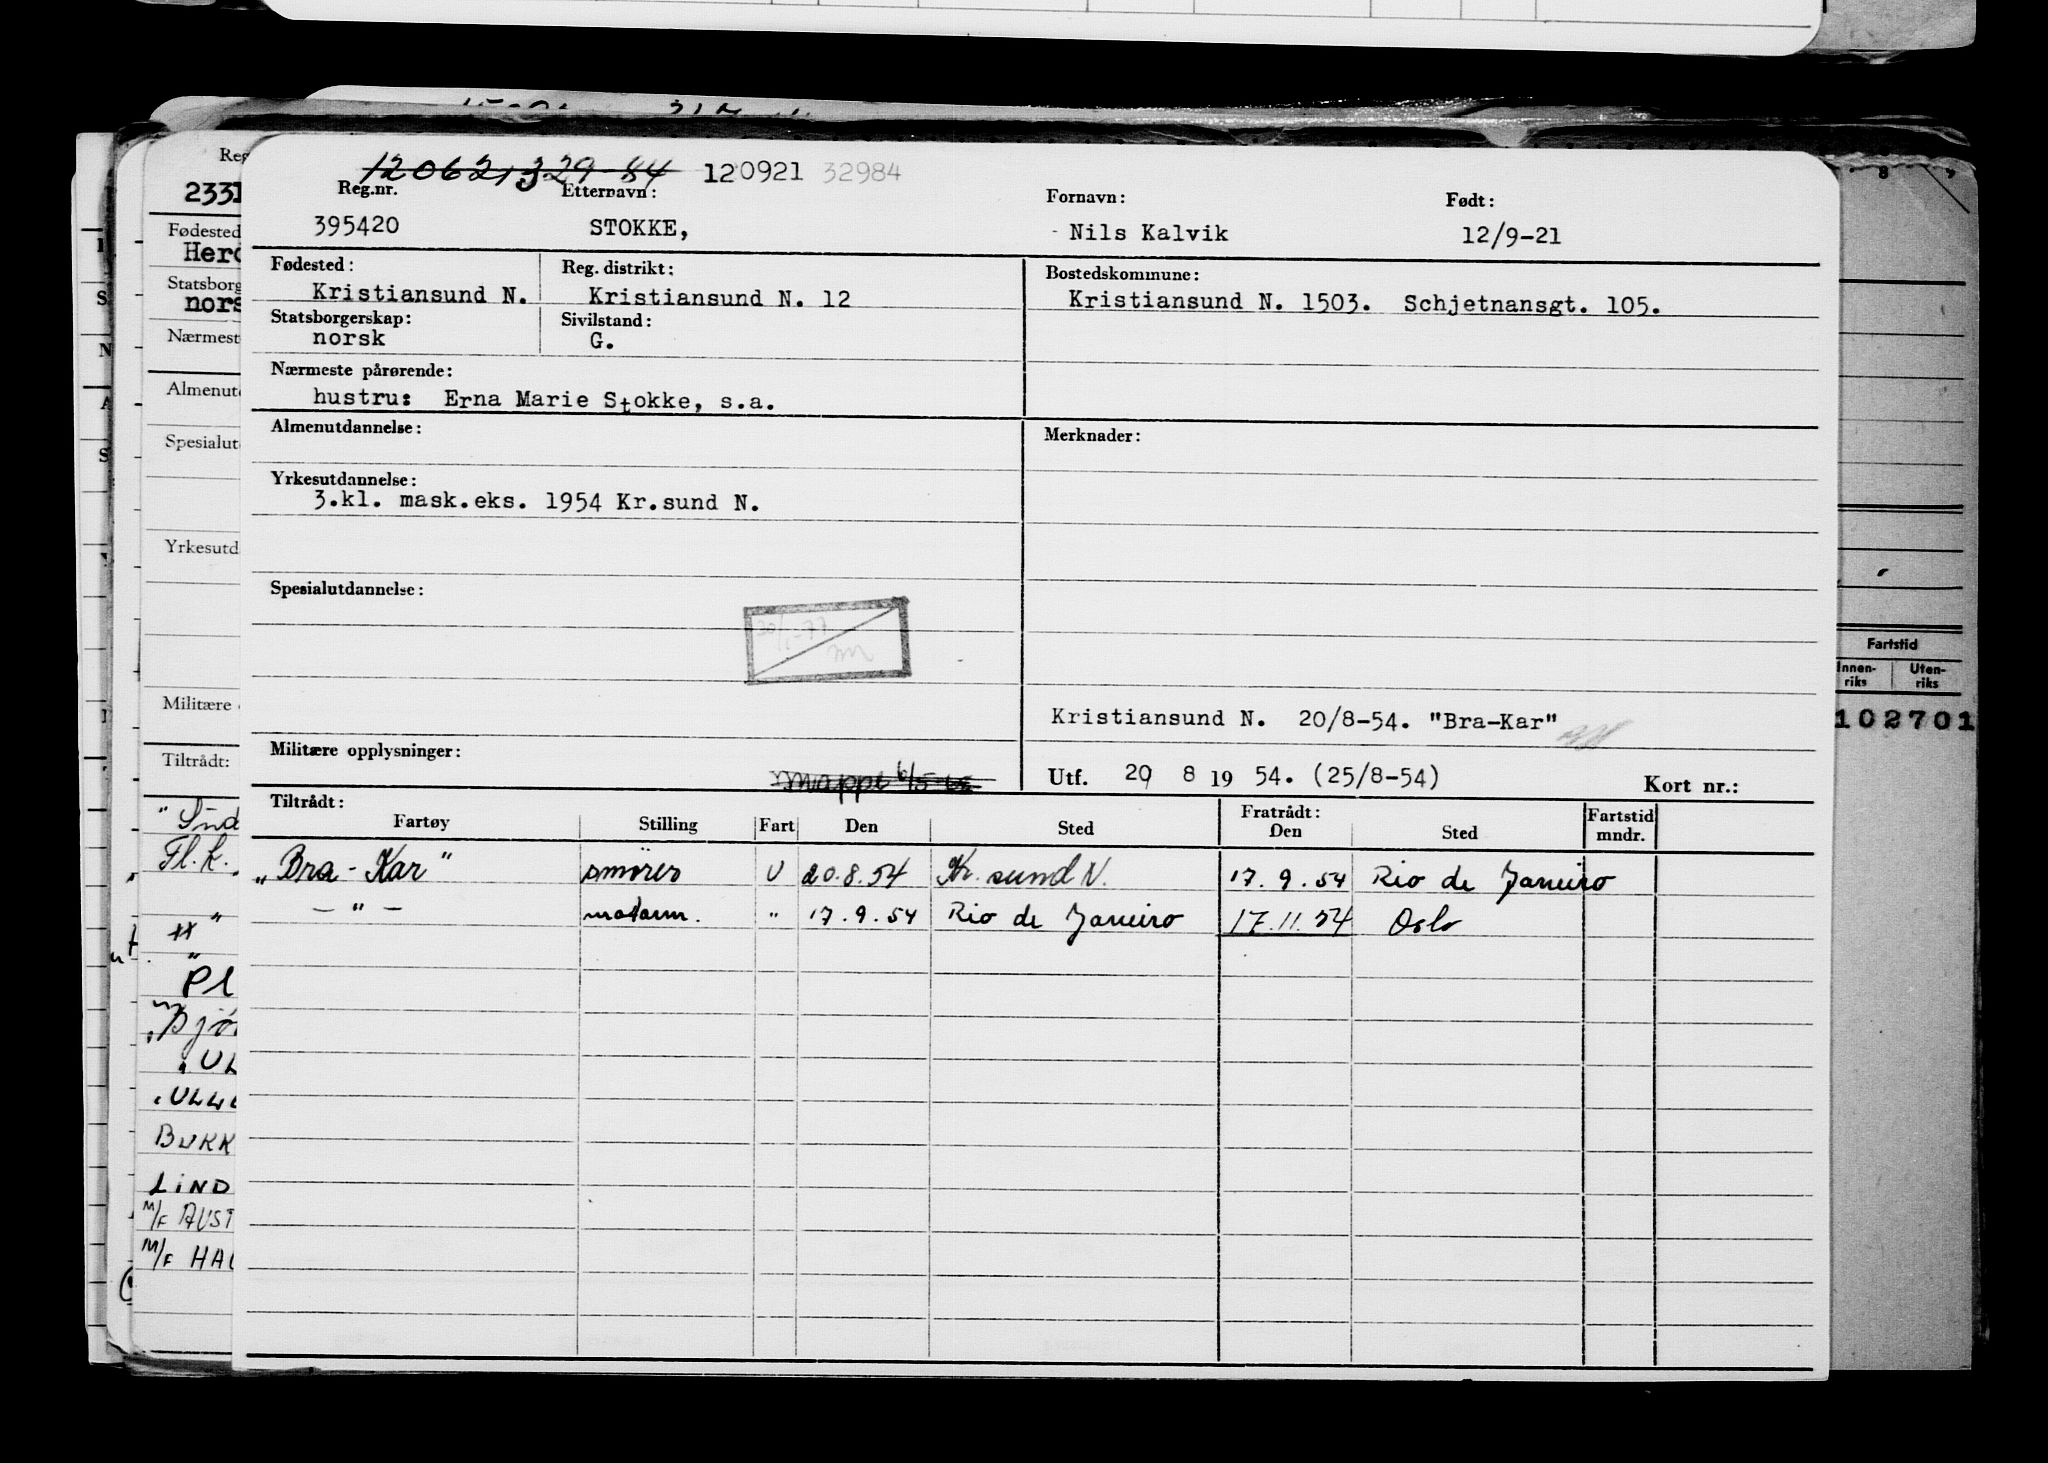 12062132984 120921 32984
Reg.nr. Etternavn: Fornavn: Født:
395420 STOKKE, Nils Kalvik 12/9-21
Fødested: Reg. distrikt: Bostedskommune:
Kristiansund N. Kristiansund N. 12 Kristiansund N. 1503. Schjetnansgt. 105.
Statsborgerskap: Sivilstand:
norsk G.
Nærmeste pårørende:
hustru: Erna Marie Stokke, s.a.
Almenutdannelse: Merknader:
Yrkesutdannelse:
3.kl. mask.eks. 1954 Kr.sund N.
Spesialutdannelse:
Kristiansund N. 20/8-54. "Bra-Kar"
Militære opplysninger:
mappe 6/5
Utf. 20 8 19 54. (25/8-54) Kort nr.:
Tiltrådt: Fratrådt: Fartstid
Fartøy Stilling Fart Den Sted Den Sted mndr.
„Bra-Kar" smörer U 20.8.54 Kr.sund N. 17.9.54 Rio de Janeiro
— " — motorm. " 17.9.54 Rio de Janeiro 17.11.54 Oslo
Reg
2331
Fødested
Herø
Statsborg
nors
Nærmest
Almenut
Spesialut
Yrkesutd
Militære
Tiltrådt:
Fl.k.
Pl
"Bjø
UL
BUKK
LIND
M/F AUST
M/F HAU
Fartstid
Innen- Uten-
riks riks
102701